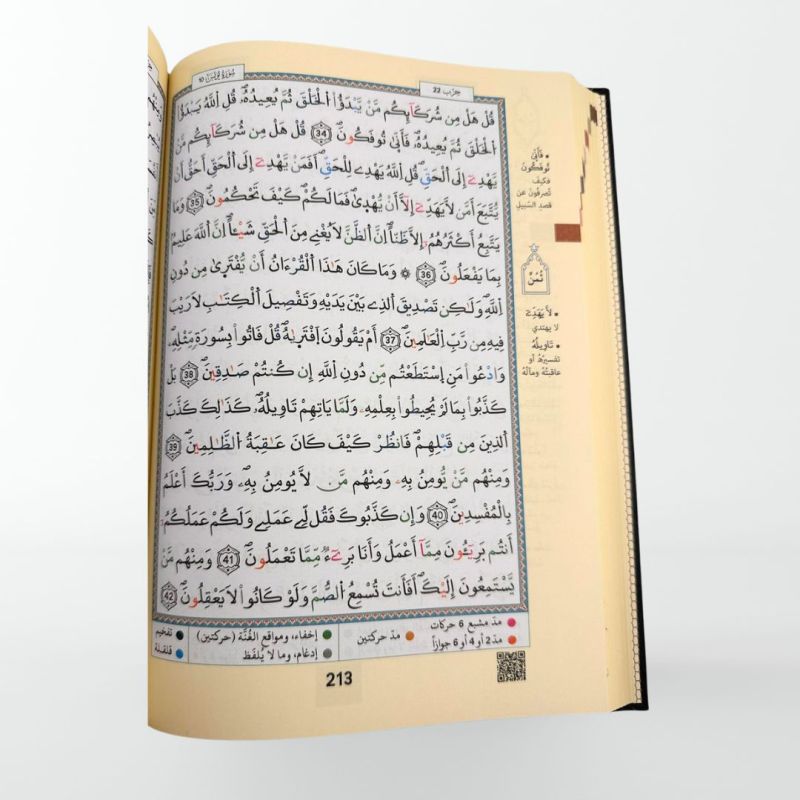 حِزْب 22
سُورَةُ يُونُسَ 10
قُلْ هَلْ مِن شُرَكَآئِكُم مَّنْ يَّبْدَؤُاْ اُلْخَلْقَ ثُمَّ يُعِيدُهُۥۖ قُلِ اِللَّهُ يَبْدَؤُاْ
اُلْخَلْقَ ثُمَّ يُعِيدُهُۥۖ فَأَنّ۪يٰ تُوفَكُونَۖ 34 قُلْ هَلْ مِن شُرَكَآئِكُم مَّنْ
يَّهْدِےٓ إِلَى اَلْحَقِّۖ قُلِ اِللَّهُ يَهْدِے لِلْحَقِّۖ أَفَمَنْ يَّهْدِےٓ إِلَى اَلْحَقِّ أَحَقُّ أَنْ
يُّتَّبَعَ أَمَّن لَّا يَهَدِّےٓ إِلَّآ أَنْ يُّهْد۪يٰۖ فَمَا لَكُمْ كَيْفَ تَحْكُمُونَۖ 35 وَمَا
يَتَّبِعُ أَكْثَرُهُمُۥٓ إِلَّا ظَنّاًۖ اِنَّ اَلظَّنَّ لَا يُغْنِے مِنَ اَلْحَقِّ شَيْـٔاًۖ اِنَّ اَللَّهَ عَلِيمُۢ
بِمَا يَفْعَلُونَۖ 36 ۞ وَمَا كَانَ هَٰذَا اَلْقُرْءَانُ أَنْ يُّفْتَر۪يٰ مِن دُونِ
اِللَّهِۖ وَلَٰكِن تَصْدِيقَ اَلذِے بَيْنَ يَدَيْهِ وَتَفْصِيلَ اَلْكِتَٰبِ لَا رَيْبَ
فِيهِ مِن رَّبِّ اِلْعَٰلَمِينَۖ 37 أَمْ يَقُولُونَ اَفْتَر۪يٰهُۖ قُلْ فَاتُواْ بِسُورَةٖ مِّثْلِهِۦ
وَادْعُواْ مَنِ اِسْتَطَعْتُم مِّن دُونِ اِللَّهِ إِن كُنتُمْ صَٰدِقِينَۖ 38 بَلْ
كَذَّبُواْ بِمَا لَمْ يُحِيطُواْ بِعِلْمِهِۦ وَلَمَّا يَاتِهِمْ تَاوِيلُهُۥۖ كَذَٰلِكَ كَذَّبَ
اَلذِينَ مِن قَبْلِهِمْۖ فَانظُرْ كَيْفَ كَانَ عَٰقِبَةُ اُلظَّٰلِمِينَۖ 39
وَمِنْهُم مَّنْ يُّومِنُ بِهِۦ وَمِنْهُم مَّن لَّا يُومِنُ بِهِۦۖ وَرَبُّكَ أَعْلَمُ
بِالْمُفْسِدِينَۖ 40 وَإِن كَذَّبُوكَ فَقُل لِّے عَمَلِے وَلَكُمْ عَمَلُكُمُۥٓ
أَنتُم بَرِيٓـُٔونَ مِمَّآ أَعْمَلُ وَأَنَا بَرِےٓءٞ مِّمَّا تَعْمَلُونَۖ 41 وَمِنْهُم مَّنْ
يَّسْتَمِعُونَ إِلَيْكَۖ أَفَأَنتَ تُسْمِعُ اُلصُّمَّ وَلَوْ كَانُواْ لَا يَعْقِلُونَۖ 42
• فَأَنّ۪يٰ
تُوفَكُونَ
فكيف
تُصرفُونَ عن
قصدِ السّبيلِ
ثُمُنْ
• لَّا يَهَدِّےٓ
لا يهتدي
• تَاوِيلُهُۥ
تفسيرُهُ أو
عاقبتُهُ ومآلُهُ
مدّ مشبع 6 حركات
مدّ 2 أو 4 أو 6 جوازاً
مدّ حركتين
إخفاء، ومواقع الغُنَّة (حركتين)
إدغام، وما لا يُلفَظ
تفخيم
قلقلة
213